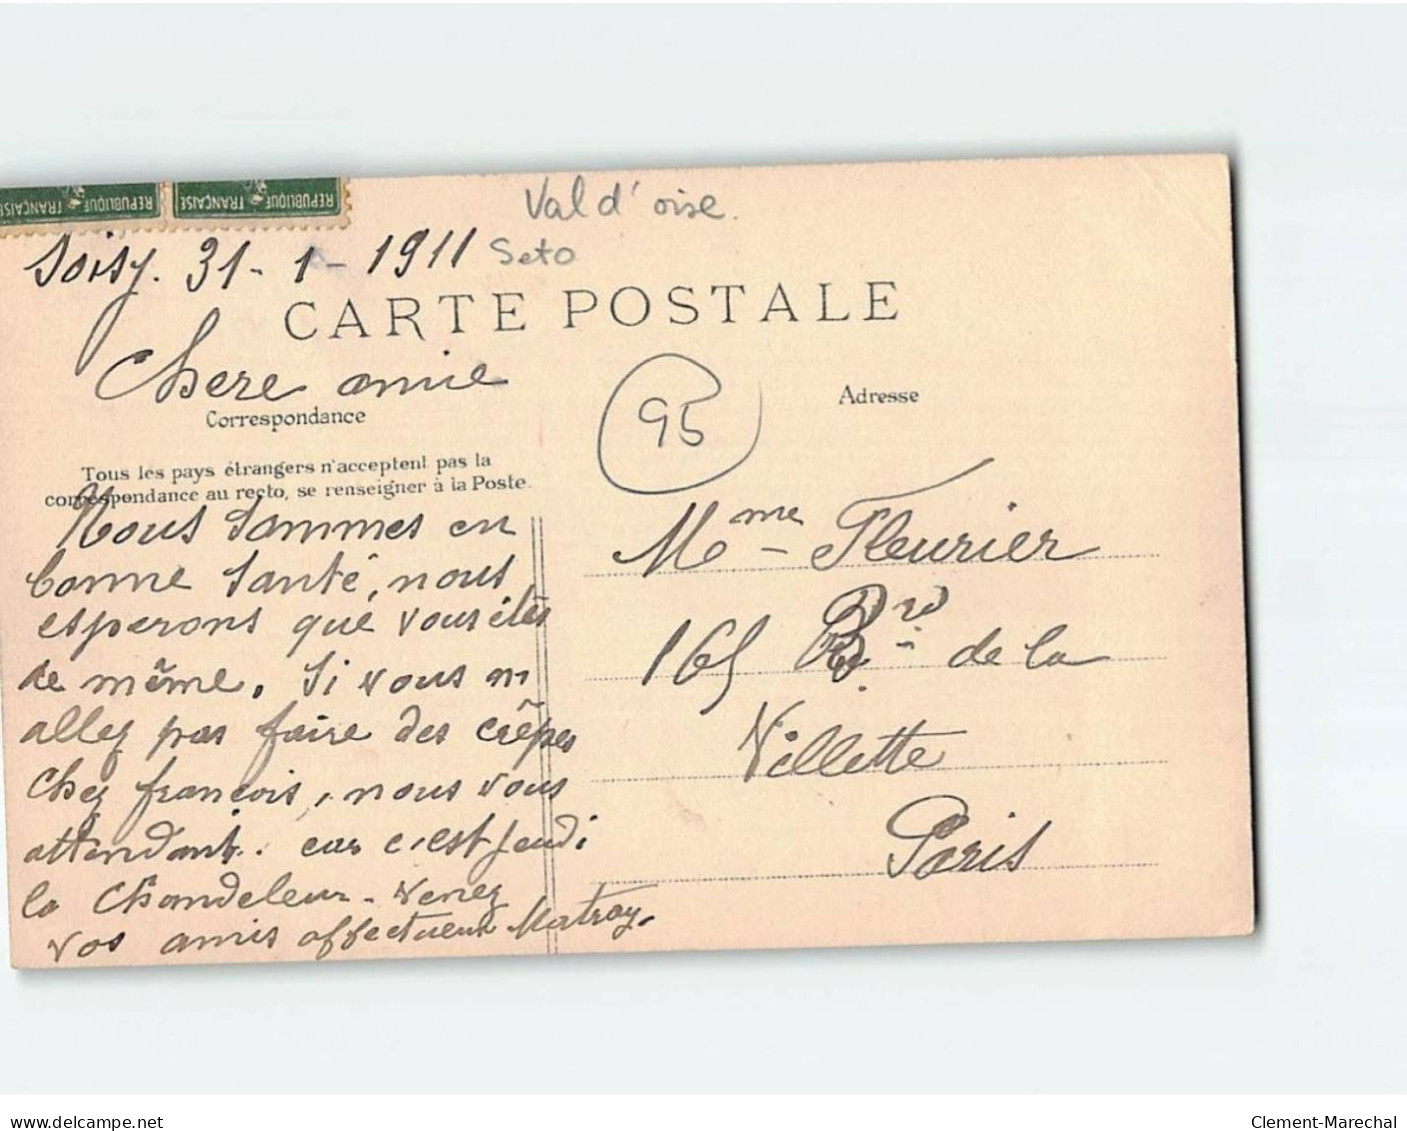 REPUBLIQUE FRANÇAISE REPUBLIQUE FRANÇAISE
Val d'oise.
Soisy. 31-1-1911 Seto
CARTE POSTALE
Chere amie
Correspondance
Tous les pays étrangers n'acceptent pas la
correspondance au recto, se renseigner à la Poste.
Nous sommes en
bonne santé, nous
esperons que vous êtes
de même. Si vous n
allez pas faire des crêpes
chez francois, nous vous
attendant. car c'est jeudi
la Chandeleur. Venez
vos amis affectueux Matray.
95
Adresse
Mme Fleurier
165 Bd de la
Villette
Paris
www.delcampe.net
Clement-Marechal